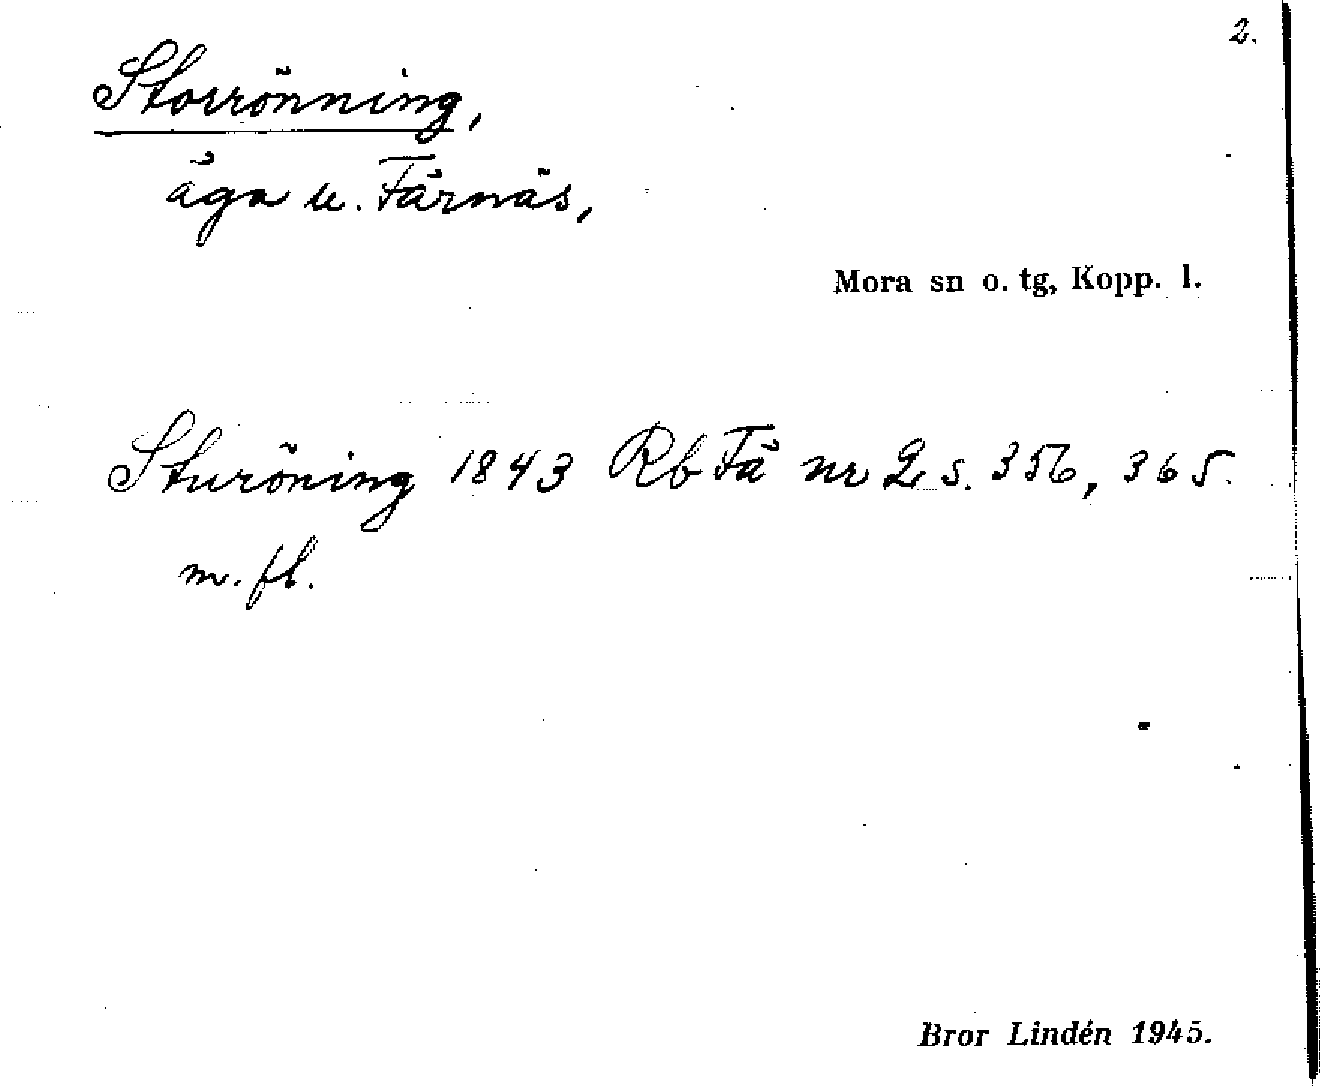 2.
Storrönning,
äga u. Färnäs,
Mora sn o. tg, Kopp. l.
Sturöning 1843 Rb Fä nr 2 s. 356, 365
m. fl.
Bror Lindén 1945.